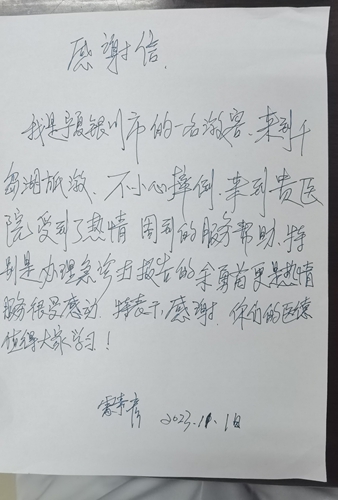 感谢信
我是宁夏银川市的一名游客、来到千
岛湖旅游、不小心摔倒、来到贵医
院受到了热情周到的服务帮助、特
别是办理急诊报告的余勇苗更是热情
服务很受感动、特表示感谢、你们的医德
值得大家学习！
2023.11.1日